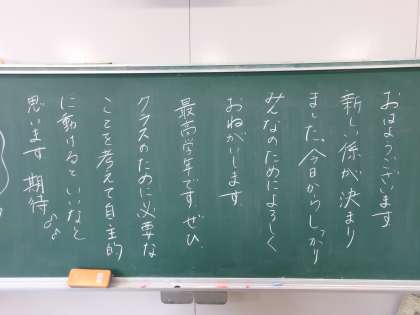 おはようございます
新しい係が決まり
ました。今日からしっかり
みんなのためによろしく
おねがいします。
最高学年です。ぜひ、
クラスのために必要な
ことを考えて自主的
に動けるといいなと
思います。期待♪♪